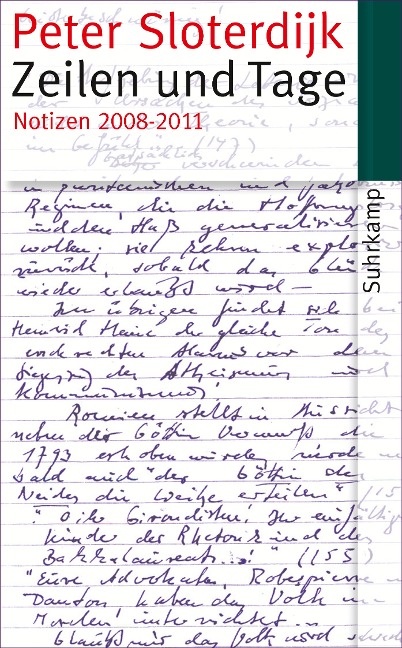 Peter Sloterdijk
Zeilen und Tage
Notizen 2008-2011
Suhrkamp
in puritanischen und
Regimen, die die
und den Haß generalisieren
wollen. sie kehren
zurück, sobald das
wieder erlaubt wird –
Im übrigen findet sich bei
der gleiche Ton des
vor dem
Siegeszug des Atheismus und
Kommunismus!
Romieu stellt in Aussicht
neben der Göttin Vernunft die
1793 erhoben wurde, werde
bald auch "der Göttin des
Neides die Weihe erteilen" (15
"O ihr Girondisten! Ihr
Kinder der Rhetorik und des
Bakkalaureats...!" (155)
"Eure Advokaten, Robespierre
Danton, haben das Volk im
Morden unterrichtet...
das Volk wird